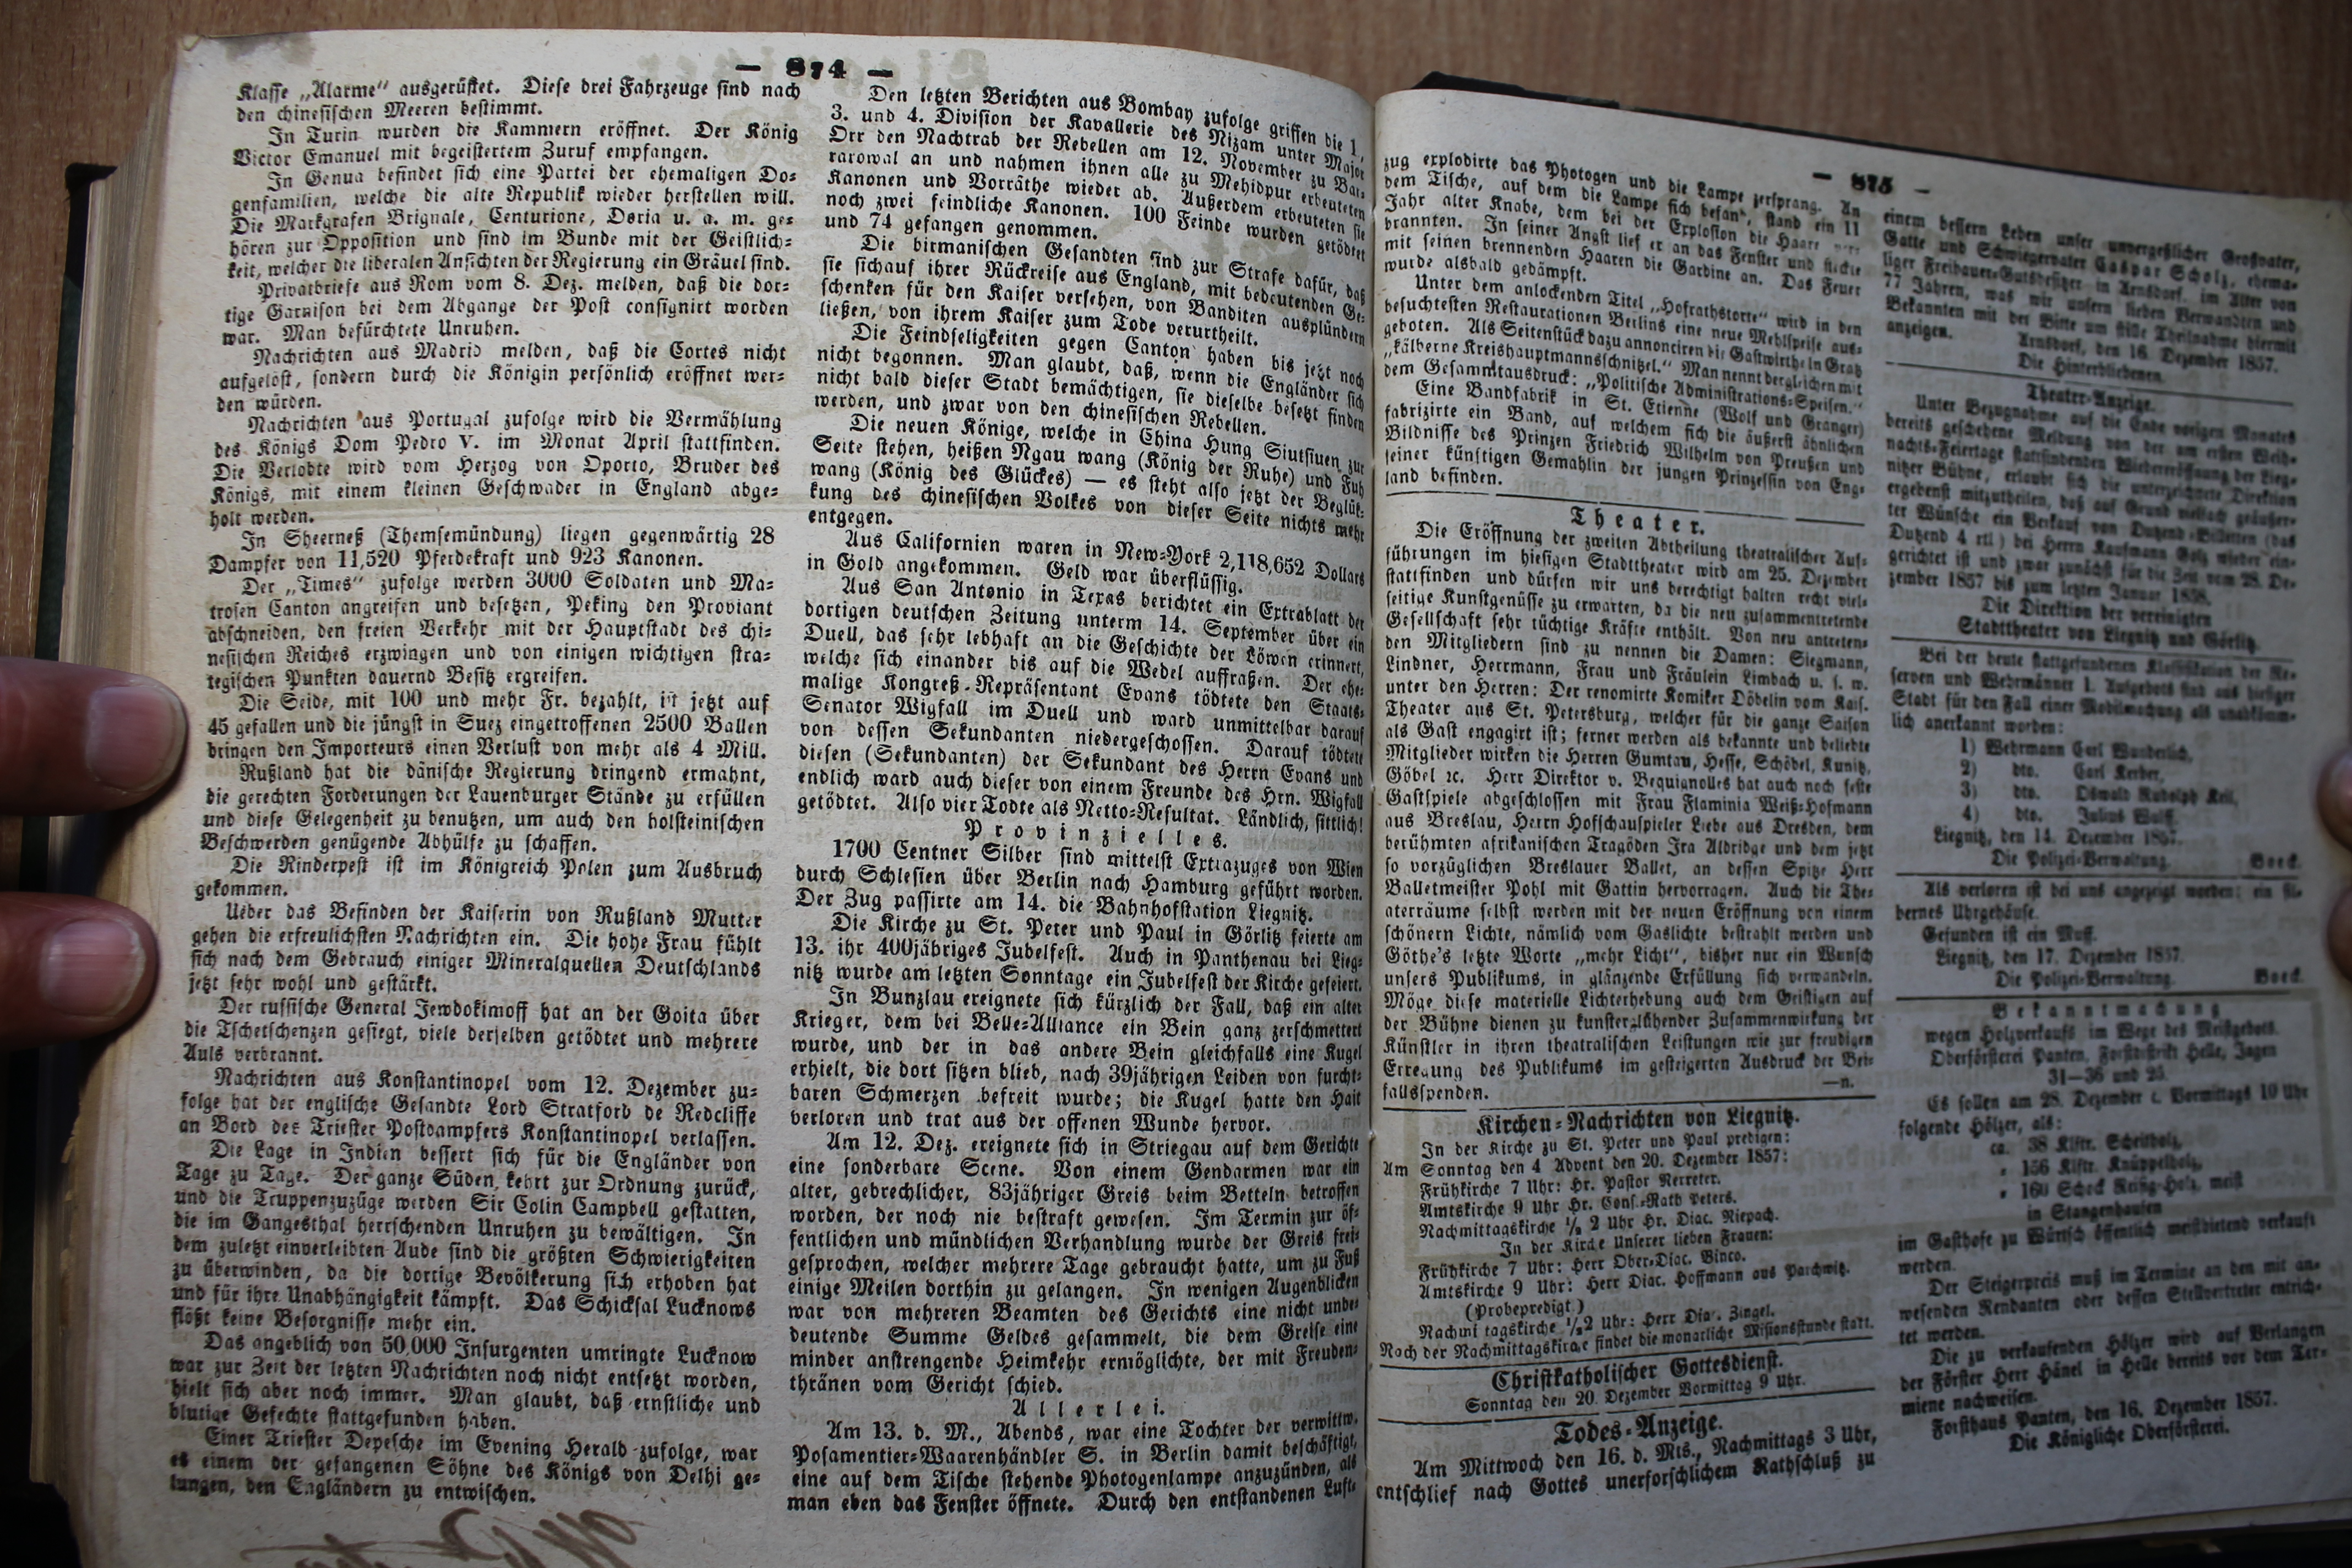 — 874 —
Klasse „Alarme“ ausgerüstet. Diese drei Fahrzeuge sind nach
den chinesischen Meeren bestimmt.
In Turin wurden die Kammern eröffnet. Der König
Victor Emanuel mit begeistertem Zuruf empfangen.
In Genua befindet sich eine Partei der ehemaligen Do-
genfamilien, welche die alte Republik wieder herstellen will.
Die Markgrafen Brignale, Centurione, Doria u. a. m. ge-
hören zur Opposition und sind im Bunde mit der Geistlich-
keit, welcher die liberalen Ansichten der Regierung ein Gräuel sind.
Privatbriefe aus Rom vom 8. Dez. melden, daß die dor-
tige Garnison bei dem Abgange der Post consignirt worden
war. Man befürchtete Unruhen.
Nachrichten aus Madrid melden, daß die Cortes nicht
aufgelöst, sondern durch die Königin persönlich eröffnet wer-
den würden.
Nachrichten aus Portugal zufolge wird die Vermählung
des Königs Dom Pedro V. im Monat April stattfinden.
Die Verlobte wird vom Herzog von Oporto, Bruder des
Königs, mit einem kleinen Geschwader in England abge-
holt werden.
In Sheerneß (Themsemündung) liegen gegenwärtig 28
Dampfer von 11,520 Pferdekraft und 923 Kanonen.
Der „Times“ zufolge werden 3000 Soldaten und Ma-
trosen Canton angreifen und besetzen, Peking den Proviant
abschneiden, den freien Verkehr mit der Hauptstadt des chi-
nesischen Reiches erzwingen und von einigen wichtigen stra-
tegischen Punkten dauernd Besitz ergreifen.
Die Seide, mit 100 und mehr Fr. bezahlt, ist jetzt auf
45 gefallen und die jüngst in Suez eingetroffenen 2500 Ballen
bringen den Importeurs einen Verlust von mehr als 4 Mill.
Rußland hat die dänische Regierung dringend ermahnt,
die gerechten Forderungen der Lauenburger Stände zu erfüllen
und diese Gelegenheit zu benutzen, um auch den holsteinischen
Beschwerden genügende Abhülfe zu schaffen.
Die Rinderpest ist im Königreich Polen zum Ausbruch
gekommen.
Ueber das Befinden der Kaiserin von Rußland Mutter
gehen die erfreulichsten Nachrichten ein. Die hohe Frau fühlt
sich nach dem Gebrauch einiger Mineralquellen Deutschlands
jetzt sehr wohl und gestärkt.
Der russische General Jewdokimoff hat an der Goita über
die Tschetschenzen gesiegt, viele derselben getödtet und mehrere
Auls verbrannt.
Nachrichten aus Konstantinopel vom 12. Dezember zu-
folge hat der englische Gesandte Lord Stratford de Redcliffe
an Bord des Triester Postdampfers Konstantinopel verlassen.
Die Lage in Indien bessert sich für die Engländer von
Tage zu Tage. Der ganze Süden kehrt zur Ordnung zurück,
und die Truppenzuzüge werden Sir Colin Campbell gestatten,
die im Gangesthal herrschenden Unruhen zu bewältigen. In
dem zuletzt einverleibten Aude sind die größten Schwierigkeiten
zu überwinden, da die dortige Bevölkerung sich erhoben hat
und für ihre Unabhängigkeit kämpft. Das Schicksal Lucknows
flößt keine Besorgnisse mehr ein.
Das angeblich von 50,000 Insurgenten umringte Lucknow
war zur Zeit der letzten Nachrichten noch nicht entsetzt worden,
hielt sich aber noch immer. Man glaubt, daß ernstliche und
blutige Gefechte stattgefunden haben.
Einer Triester Depesche im Evening Herald zufolge, war
es einem der gefangenen Söhne des Königs von Delhi ge-
lungen, den Engländern zu entwischen.
Den letzten Berichten aus Bombay zufolge griffen die 1.,
3. und 4. Division der Kavallerie des Nizam unter Major
Orr den Nachtrab der Rebellen am 12. November zu Bau-
rarowal an und nahmen ihnen alle zu Mehidpur erbeuteten
Kanonen und Vorräthe wieder ab. Außerdem erbeuteten sie
noch zwei feindliche Kanonen. 100 Feinde wurden getödtet
und 74 gefangen genommen.
Die birmanischen Gesandten sind zur Strafe dafür, daß
sie sich auf ihrer Rückreise aus England, mit bedeutenden Ge-
schenken für den Kaiser versehen, von Banditen ausplündern
ließen, von ihrem Kaiser zum Tode verurtheilt.
Die Feindseligkeiten gegen Canton haben bis jetzt noch
nicht begonnen. Man glaubt, daß, wenn die Engländer sich
nicht bald dieser Stadt bemächtigen, sie dieselbe besetzt finden
werden, und zwar von den chinesischen Rebellen.
Die neuen Könige, welche in China Hung Siutsiuen zur
Seite stehen, heißen Ngau wang (König der Ruhe) und Fuh
wang (König des Glückes) — es steht also jetzt der Beglük-
kung des chinesischen Volkes von dieser Seite nichts mehr
entgegen.
Aus Californien waren in New-York 2,118,652 Dollars
in Gold angekommen. Geld war überflüssig.
Aus San Antonio in Texas berichtet ein Extrablatt der
dortigen deutschen Zeitung unterm 14. September über ein
Duell, das sehr lebhaft an die Geschichte der Löwen erinnert,
welche sich einander bis auf die Wedel auffraßen. Der ehe-
malige Kongreß-Repräsentant Evans tödtete den Staats-
Senator Wigfall im Duell und ward unmittelbar darauf
von dessen Sekundanten niedergeschossen. Darauf tödtete
diesen (Sekundanten) der Sekundant des Herrn Evans und
endlich ward auch dieser von einem Freunde des Hrn. Wigfall
getödtet. Also vier Todte als Netto-Resultat. Ländlich, sittlich!
Provinzielles.
1700 Centner Silber sind mittelst Extrazuges von Wien
durch Schlesien über Berlin nach Hamburg geführt worden.
Der Zug passirte am 14. die Bahnhofstation Liegnitz.
Die Kirche zu St. Peter und Paul in Görlitz feierte am
13. ihr 400jähriges Jubelfest. Auch in Panthenau bei Lieg-
nitz wurde am letzten Sonntage ein Jubelfest der Kirche gefeiert.
In Bunzlau ereignete sich kürzlich der Fall, daß ein alter
Krieger, dem bei Belle-Alliance ein Bein ganz zerschmettert
wurde, und der in das andere Bein gleichfalls eine Kugel
erhielt, die dort sitzen blieb, nach 39jährigen Leiden von furcht-
baren Schmerzen befreit wurde; die Kugel hatte den Halt
verloren und trat aus der offenen Wunde hervor.
Am 12. Dez. ereignete sich in Striegau auf dem Gerichte
eine sonderbare Scene. Von einem Gendarmen war ein
alter, gebrechlicher, 83jähriger Greis beim Betteln betroffen
worden, der noch nie bestraft gewesen. Im Termin zur öf-
fentlichen und mündlichen Verhandlung wurde der Greis frei-
gesprochen, welcher mehrere Tage gebraucht hatte, um zu Fuß
einige Meilen dorthin zu gelangen. In wenigen Augenblicken
war von mehreren Beamten des Gerichts eine nicht unbe-
deutende Summe Geldes gesammelt, die dem Greise eine
minder anstrengende Heimkehr ermöglichte, der mit Freuden-
thränen vom Gericht schied.
Allerlei.
Am 13. d. M., Abends, war eine Tochter der verwittw.
Posamentier-Waarenhändler S. in Berlin damit beschäftigt,
eine auf dem Tische stehende Photogenlampe anzuzünden, als
man eben das Fenster öffnete. Durch den entstandenen Luft-
— 875 —
zug explodirte das Photogen und die Lampe zersprang. An
dem Tische, auf dem die Lampe sich befand, stand ein 11
Jahr alter Knabe, dem bei der Explosion die Haare
brannten. In seiner Angst lief er an das Fenster und steckte
mit seinen brennenden Haaren die Gardine an. Das Feuer
wurde alsbald gedämpft.
Unter dem anlockenden Titel „Hofrathstorte“ wird in den
besuchtesten Restaurationen Berlins eine neue Mehlspeise aus-
geboten. Als Seitenstück dazu annonciren die Gastwirthe in Gratz
„kälberne Kreishauptmannsschnitzel.“ Man nennt dergleichen mit
dem Gesammtausdruck: „Politische Administrations-Speisen.“
Eine Bandfabrik in St. Etienne (Wolf und Granger)
fabrizirte ein Band, auf welchem sich die äußerst ähnlichen
Bildnisse des Prinzen Friedrich Wilhelm von Preußen und
seiner künftigen Gemahlin der jungen Prinzessin von Eng-
land befinden.
Theater.
Die Eröffnung der zweiten Abtheilung theatralischer Auf-
führungen im hiesigen Stadttheater wird am 25. Dezember
stattfinden und dürfen wir uns berechtigt halten recht viel-
seitige Kunstgenüsse zu erwarten, da die neu zusammentretende
Gesellschaft sehr tüchtige Kräfte enthält. Von neu antreten-
den Mitgliedern sind zu nennen die Damen: Siegmann,
Lindner, Herrmann, Frau und Fräulein Limbach u. s. w.
unter den Herren: Der renomirte Komiker Döbelin vom Kais.
Theater aus St. Petersburg, welcher für die ganze Saison
als Gast engagirt ist; ferner werden als bekannte und beliebte
Mitglieder wirken die Herren Gumtau, Hesse, Schödel, Kunitz,
Göbel ꝛc. Herr Direktor v. Bequignolles hat auch noch feste
Gastspiele abgeschlossen mit Frau Flaminia Weiß-Hofmann
aus Breslau, Herrn Hofschauspieler Liebe aus Dresden, dem
berühmten afrikanischen Tragöden Ira Aldridge und dem jetzt
so vorzüglichen Breslauer Ballet, an dessen Spitze Herr
Balletmeister Pohl mit Gattin hervorragen. Auch die The-
aterräume selbst werden mit der neuen Eröffnung von einem
schönern Lichte, nämlich vom Gaslichte bestrahlt werden und
Göthe's letzte Worte „mehr Licht“, bisher nur ein Wunsch
unsers Publikums, in glänzende Erfüllung sich verwandeln.
Möge diese materielle Lichterhebung auch dem Geistigen auf
der Bühne dienen zu kunsterglühender Zusammenwirkung der
Künstler in ihren theatralischen Leistungen wie zur freudigen
Erregung des Publikums im gesteigerten Ausdruck der Bei-
fallsspenden. —n.
Kirchen-Nachrichten von Liegnitz.
In der Kirche zu St. Peter und Paul predigen:
Am Sonntag den 4 Advent den 20. Dezember 1857:
Frühkirche 7 Uhr: Hr. Pastor Nerreter.
Amtskirche 9 Uhr Hr. Cons.-Rath Peters.
Nachmittagskirche ½ 2 Uhr Hr. Diac. Niepach.
In der Kirche Unserer lieben Frauen:
Frühkirche 7 Uhr: Herr Ober-Diac. Binco.
Amtskirche 9 Uhr: Herr Diac. Hoffmann aus Parchwitz.
(Probepredigt.)
Nachmittagskirche ½2 Uhr: Herr Diac. Zingel.
Nach der Nachmittagskirche findet die monatliche Missionsstunde statt.
Christkatholischer Gottesdienst.
Sonntag den 20. Dezember Vormittag 9 Uhr.
Todes-Anzeige.
Am Mittwoch den 16. d. Mts., Nachmittags 3 Uhr,
entschlief nach Gottes unerforschlichem Rathschluß zu
einem bessern Leben unser unvergeßlicher Großvater,
Gatte und Schwiegervater Caspar Scholz, ehema-
liger Freibauer-Gutsbesitzer in Arnsdorf, im Alter von
77 Jahren, was wir unsern lieben Verwandten und
Bekannten mit der Bitte um stille Theilnahme hiermit
anzeigen. Arnsdorf, den 16. Dezember 1857.
Die Hinterbliebenen.
Theater-Anzeige.
Unter Bezugnahme auf die Ende vorigen Monates
bereits geschehene Meldung von der am ersten Weih-
nachts-Feiertage stattfindenden Wiedereröffnung der Lieg-
nitzer Bühne, erlaubt sich die unterzeichnete Direktion
ergebenst mitzutheilen, daß auf Grund vielfach geäußer-
ter Wünsche ein Verkauf von Dutzend-Billetten (das
Dutzend 4 rtl.) bei Herrn Kaufmann Golz wieder ein-
gerichtet ist und zwar zunächst für die Zeit vom 28. De-
zember 1857 bis zum letzten Januar 1858.
Die Direktion der vereinigten
Stadttheater von Liegnitz und Görlitz.
Bei der heute stattgefundenen Klassifikation der Re-
serven und Wehrmänner 1. Aufgebots sind aus hiesiger
Stadt für den Fall einer Mobilmachung als unabkömm-
lich anerkannt worden:
1) Wehrmann Carl Wunderlich,
2) dto. Carl Kerber,
3) dto. Oswald Rudolph Keil,
4) dto. Julius Wolff.
Liegnitz, den 14. Dezember 1857.
Die Polizei-Verwaltung. Boeck.
Als verloren ist bei uns angezeigt worden: ein sil-
bernes Uhrgehäuse.
Gefunden ist ein Muff.
Liegnitz, den 17. Dezember 1857.
Die Polizei-Verwaltung. Boeck.
Bekanntmachung
wegen Holzverkaufs im Wege des Meistgebots.
Oberförsterei Panten, Forstdistrikt Helle, Jagen
31—36 und 25.
Es sollen am 28. Dezember c. Vormittags 10 Uhr
folgende Hölzer, als:
ca. 38 Klftr. Scheitholz,
„ 156 Klftr. Knüppelholz,
„ 160 Schock Reisig-Holz, meist
in Stangenhaufen
im Gasthofe zu Wünsch öffentlich meistbietend verkauft
werden.
Der Steigerpreis muß im Termine an den mit an-
wesenden Rendanten oder dessen Stellvertreter entrich-
tet werden.
Die zu verkaufenden Hölzer wird auf Verlangen
der Förster Herr Hänel in Helle bereits vor dem Ter-
mine nachweisen.
Forsthaus Panten, den 16. Dezember 1857.
Die Königliche Oberförsterei.